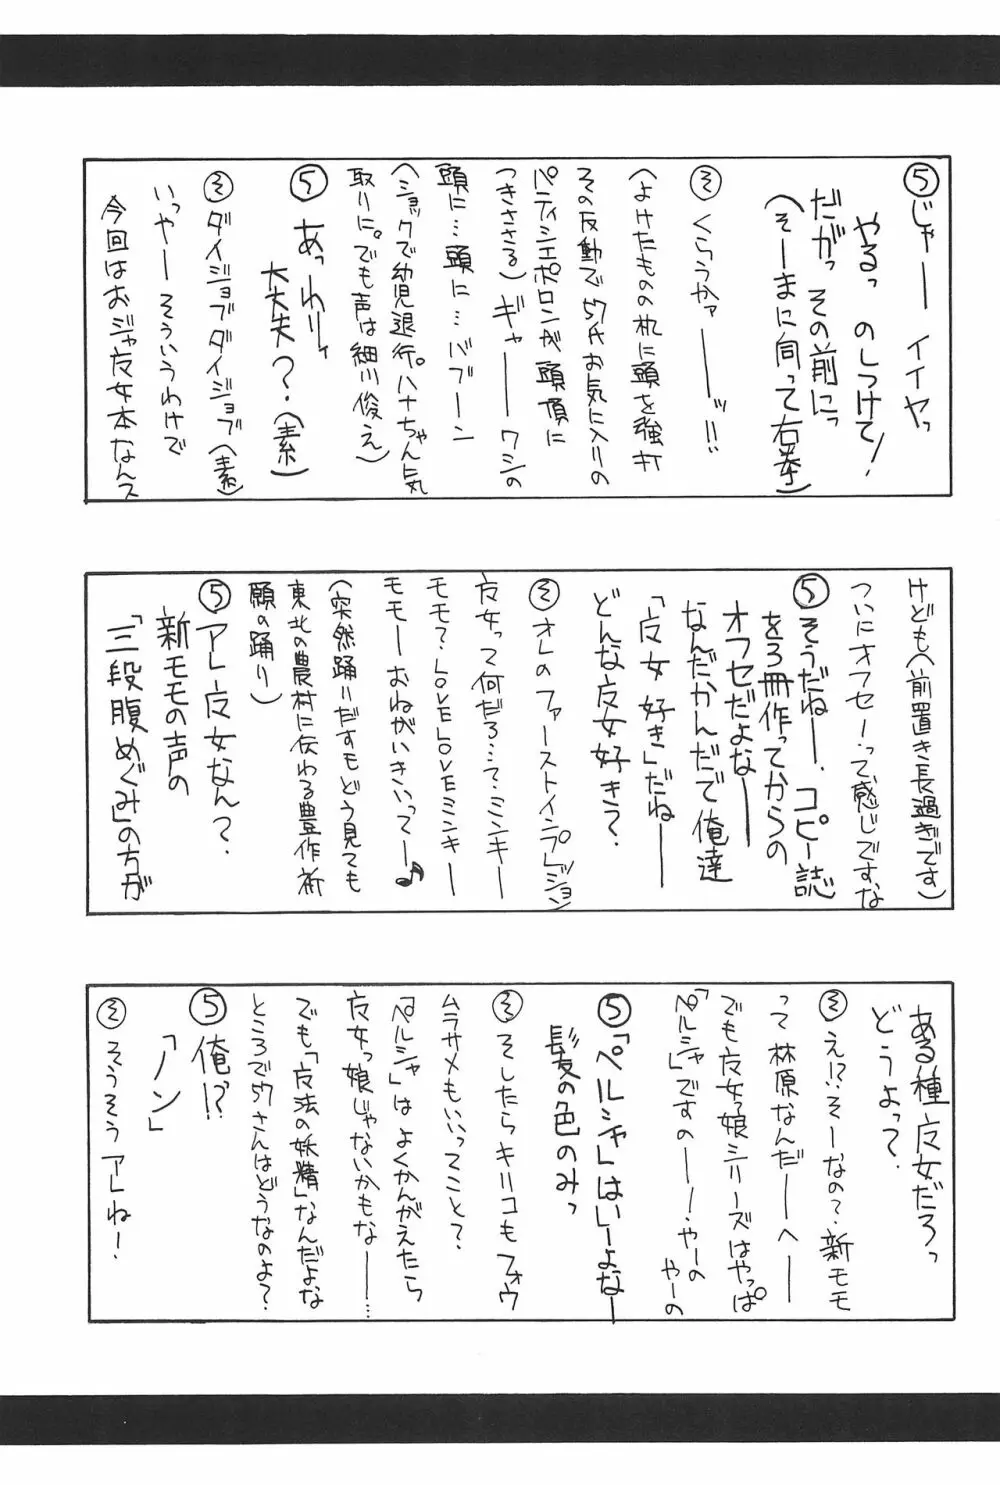 ⑤じゃーーイイヤっ
やるっ のしつけて!
だがっ その前にっ
(そーまに向って右拳)
㋞くらうかァーーーッ!!
(よけたものの机に頭を強打
その反動で57氏お気に入りの
パティシエポロンが頭頂に
つきささる)ギャーーーワシの
頭に…頭に…バブーン
(ショックで幼児退行。ハナちゃん気
取りに。でも声は細川俊え)
⑤あっわりィ
大丈夫?(素)
㋞ダイジョブダイジョブ(素)
いっやーーそういうわけで
今回はおジャ女本なんス
けども(前置き長過ぎです)
ついにオフセー!って感じですな
⑤そうだねーー、コピー誌
を3冊作ってからの
オフセだよなーーー
なんだかんだで俺達
「女好き」だねーーー
どんな女好きう?
㋞オレのファーストインプレジョン
女って何だろ…?ミンキーー
モモ?LOVELOVEミンキーー
モモーーおねがいきいってー♪
(突然踊りだすもどう見ても
東北の農村に伝わる豊作祈
願の踊り)
⑤アレ女なん?
新モモの声の
「三段腹めぐみ」の方が
ある種女だろっ
どうよって?
㋞えっ!?そーなの?新モモ
って林原なんだーーへーー
でも女っ娘シリーズはやっぱ
「ペルシャ」ですのーー!やーの
やーの
⑤「ペルシャ」はいーよなー
髪の色のみっ
㋞そしたらキリコもフォウ
ムラサメもいいってこと?
「ペルシャ」はよくかんがえたら
女っ娘じゃないかもなーーー…
でも「法の妖精」なんだよな
ところで57さんはどうなのよ?
⑤俺!?
「ノン」
㋞そうそうアレね!